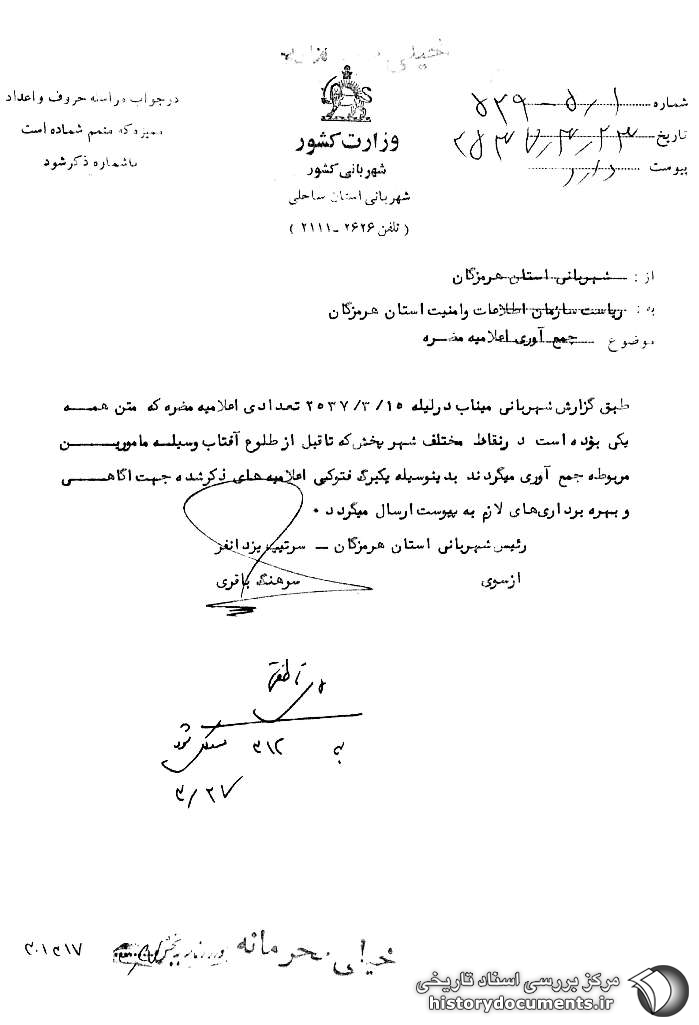 شماره ۵۲۹-۵/۱
تاریخ ۲۵۳۷/۳/۲۳
پیوست دارد
در جواب مراسله حروف و اعداد
ممیزه که منضم شماده است
باشماره ذکر شود
وزارت کشور
شهربانی کشور
شهربانی استان ساحلی
( تلفن ۲۶۲۶ - ۲۱۱۱ )
از : شهربانی استان هرمزگان
به : ریاست سازمان اطلاعات وامنیت استان هرمزگان
موضوع جمع آوری اعلامیه مضره
طبق گزارش شهربانی میناب درلیله ۲۵۳۷/۳/۱۵ تعدادی اعلامیه مضره که متن همه
یکی بوده است در نقاط مختلف شهر پخش که تا قبل از طلوع آفتاب وسیله مامورین
مربوطه جمع آوری میگردند بدینوسیله یکبرگ فتوکپی اعلامیه های ذکر شده جهت اگاهی
و بهره برداری‌های لازم به پیوست ارسال میگردد ۰
رئیس شهربانی استان هرمزگان – سرتیپ یزدانفر
از سوی سرهنگ باقری
به ۳۱۲ شود
۳/۲۷
خیلی محرمانه
۳۰۱۳۱۷
مرکز بررسی اسناد تاریخی
historydocuments.ir